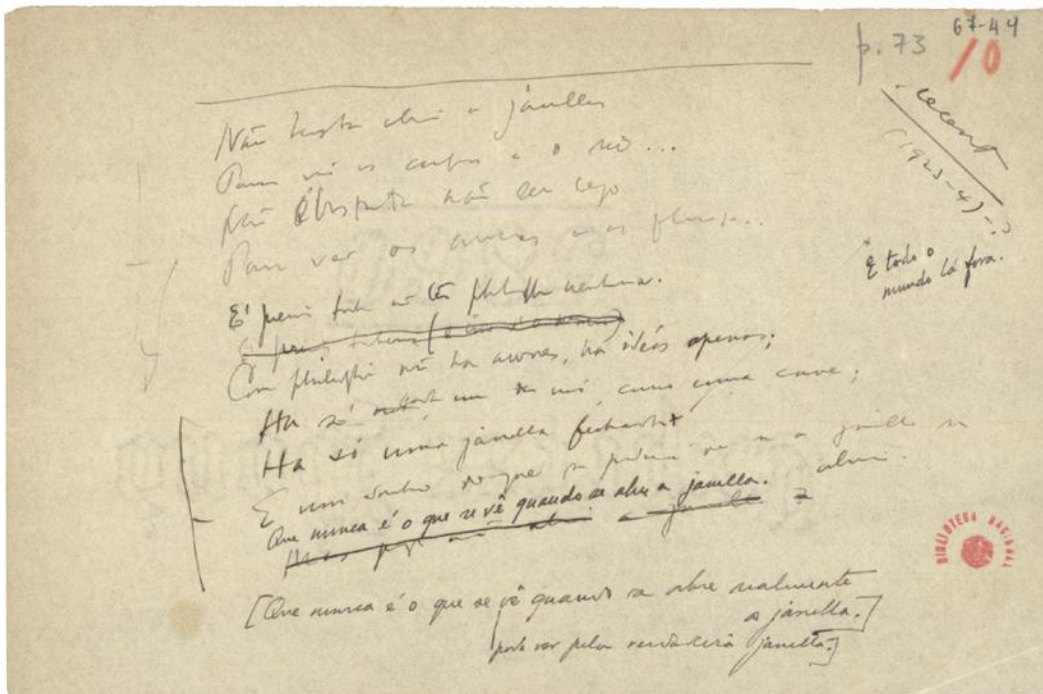 p. 73
67-44
10
recent
(1923-4)-?
Não basta abrir a janella
Para ver os campos e o rio...
Não é bastante não ser cego
Para ver as arvores e as flores...
É preciso tambem não ter philosophia nenhuma.
É preciso tambem
Com philosophia não ha arvores, ha idéas apenas;
Ha só cada um de nós, como uma cave;
Ha só uma janella fechada
* E todo o
mundo lá fora.
E um sonho do que se poderia ver se a janella se
abrisse.
Que nunca é o que se vê quando se abre a janella.
[Que nunca é o que se vê quando se abre realmente
a janella.]
pode ver pela verdadeira janella.]
BIBLIOTECA NACIONAL